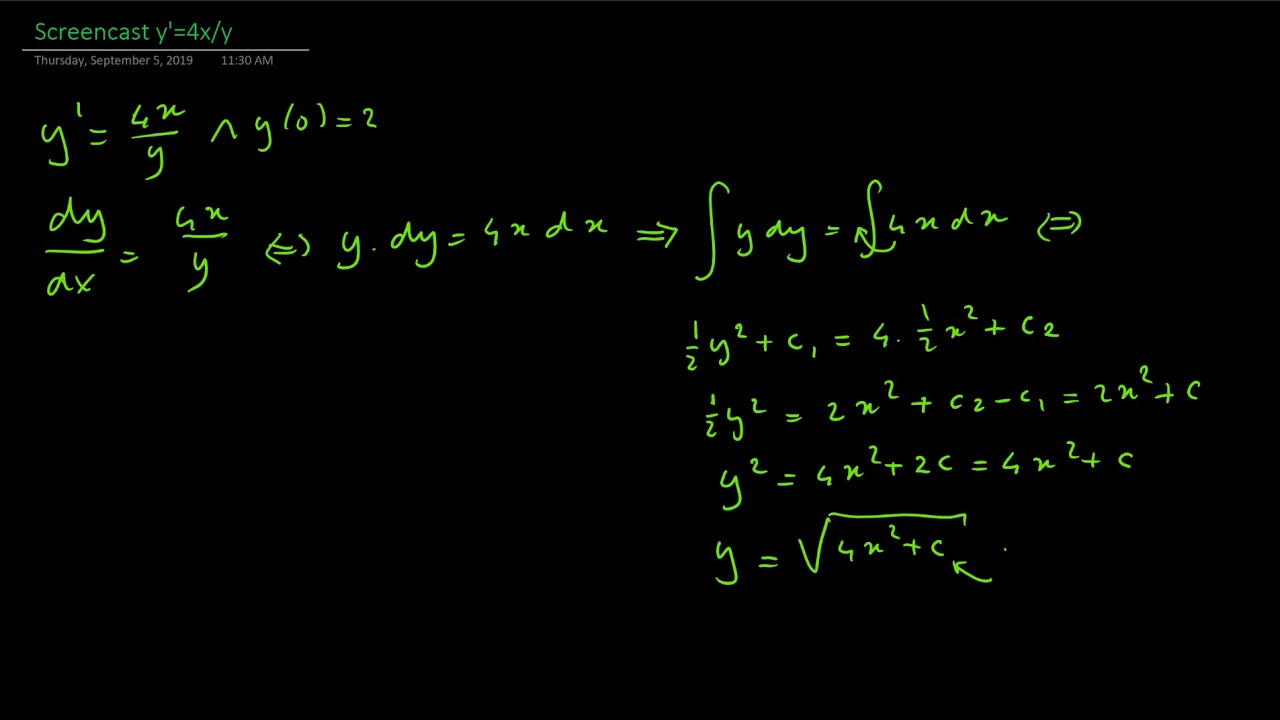 Screencast y'=4x/y
Thursday, September 5, 2019 11:30 AM
y' = 4x/y ∧ y(0) = 2
dy/dx = 4x/y ⇔ y · dy = 4x dx ⇒ ∫ y dy = ∫ 4x dx ⇔
1/2 y² + c₁ = 4 · 1/2 x² + c₂
1/2 y² = 2x² + c₂ - c₁ = 2x² + c
y² = 4x² + 2c = 4x² + c
y = √(4x² + c)